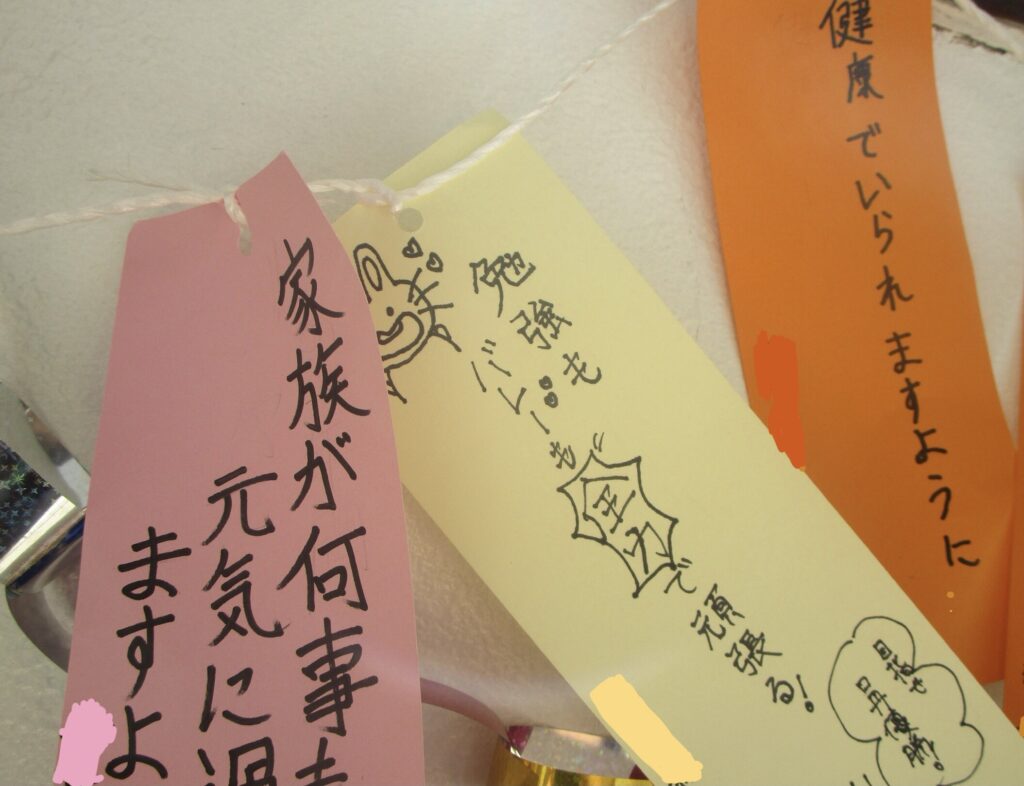 健康でいられますように
勉強も
バレーも
全力で
頑張る!
目指せ
優勝!
家族が何事
元気に過
ますよ